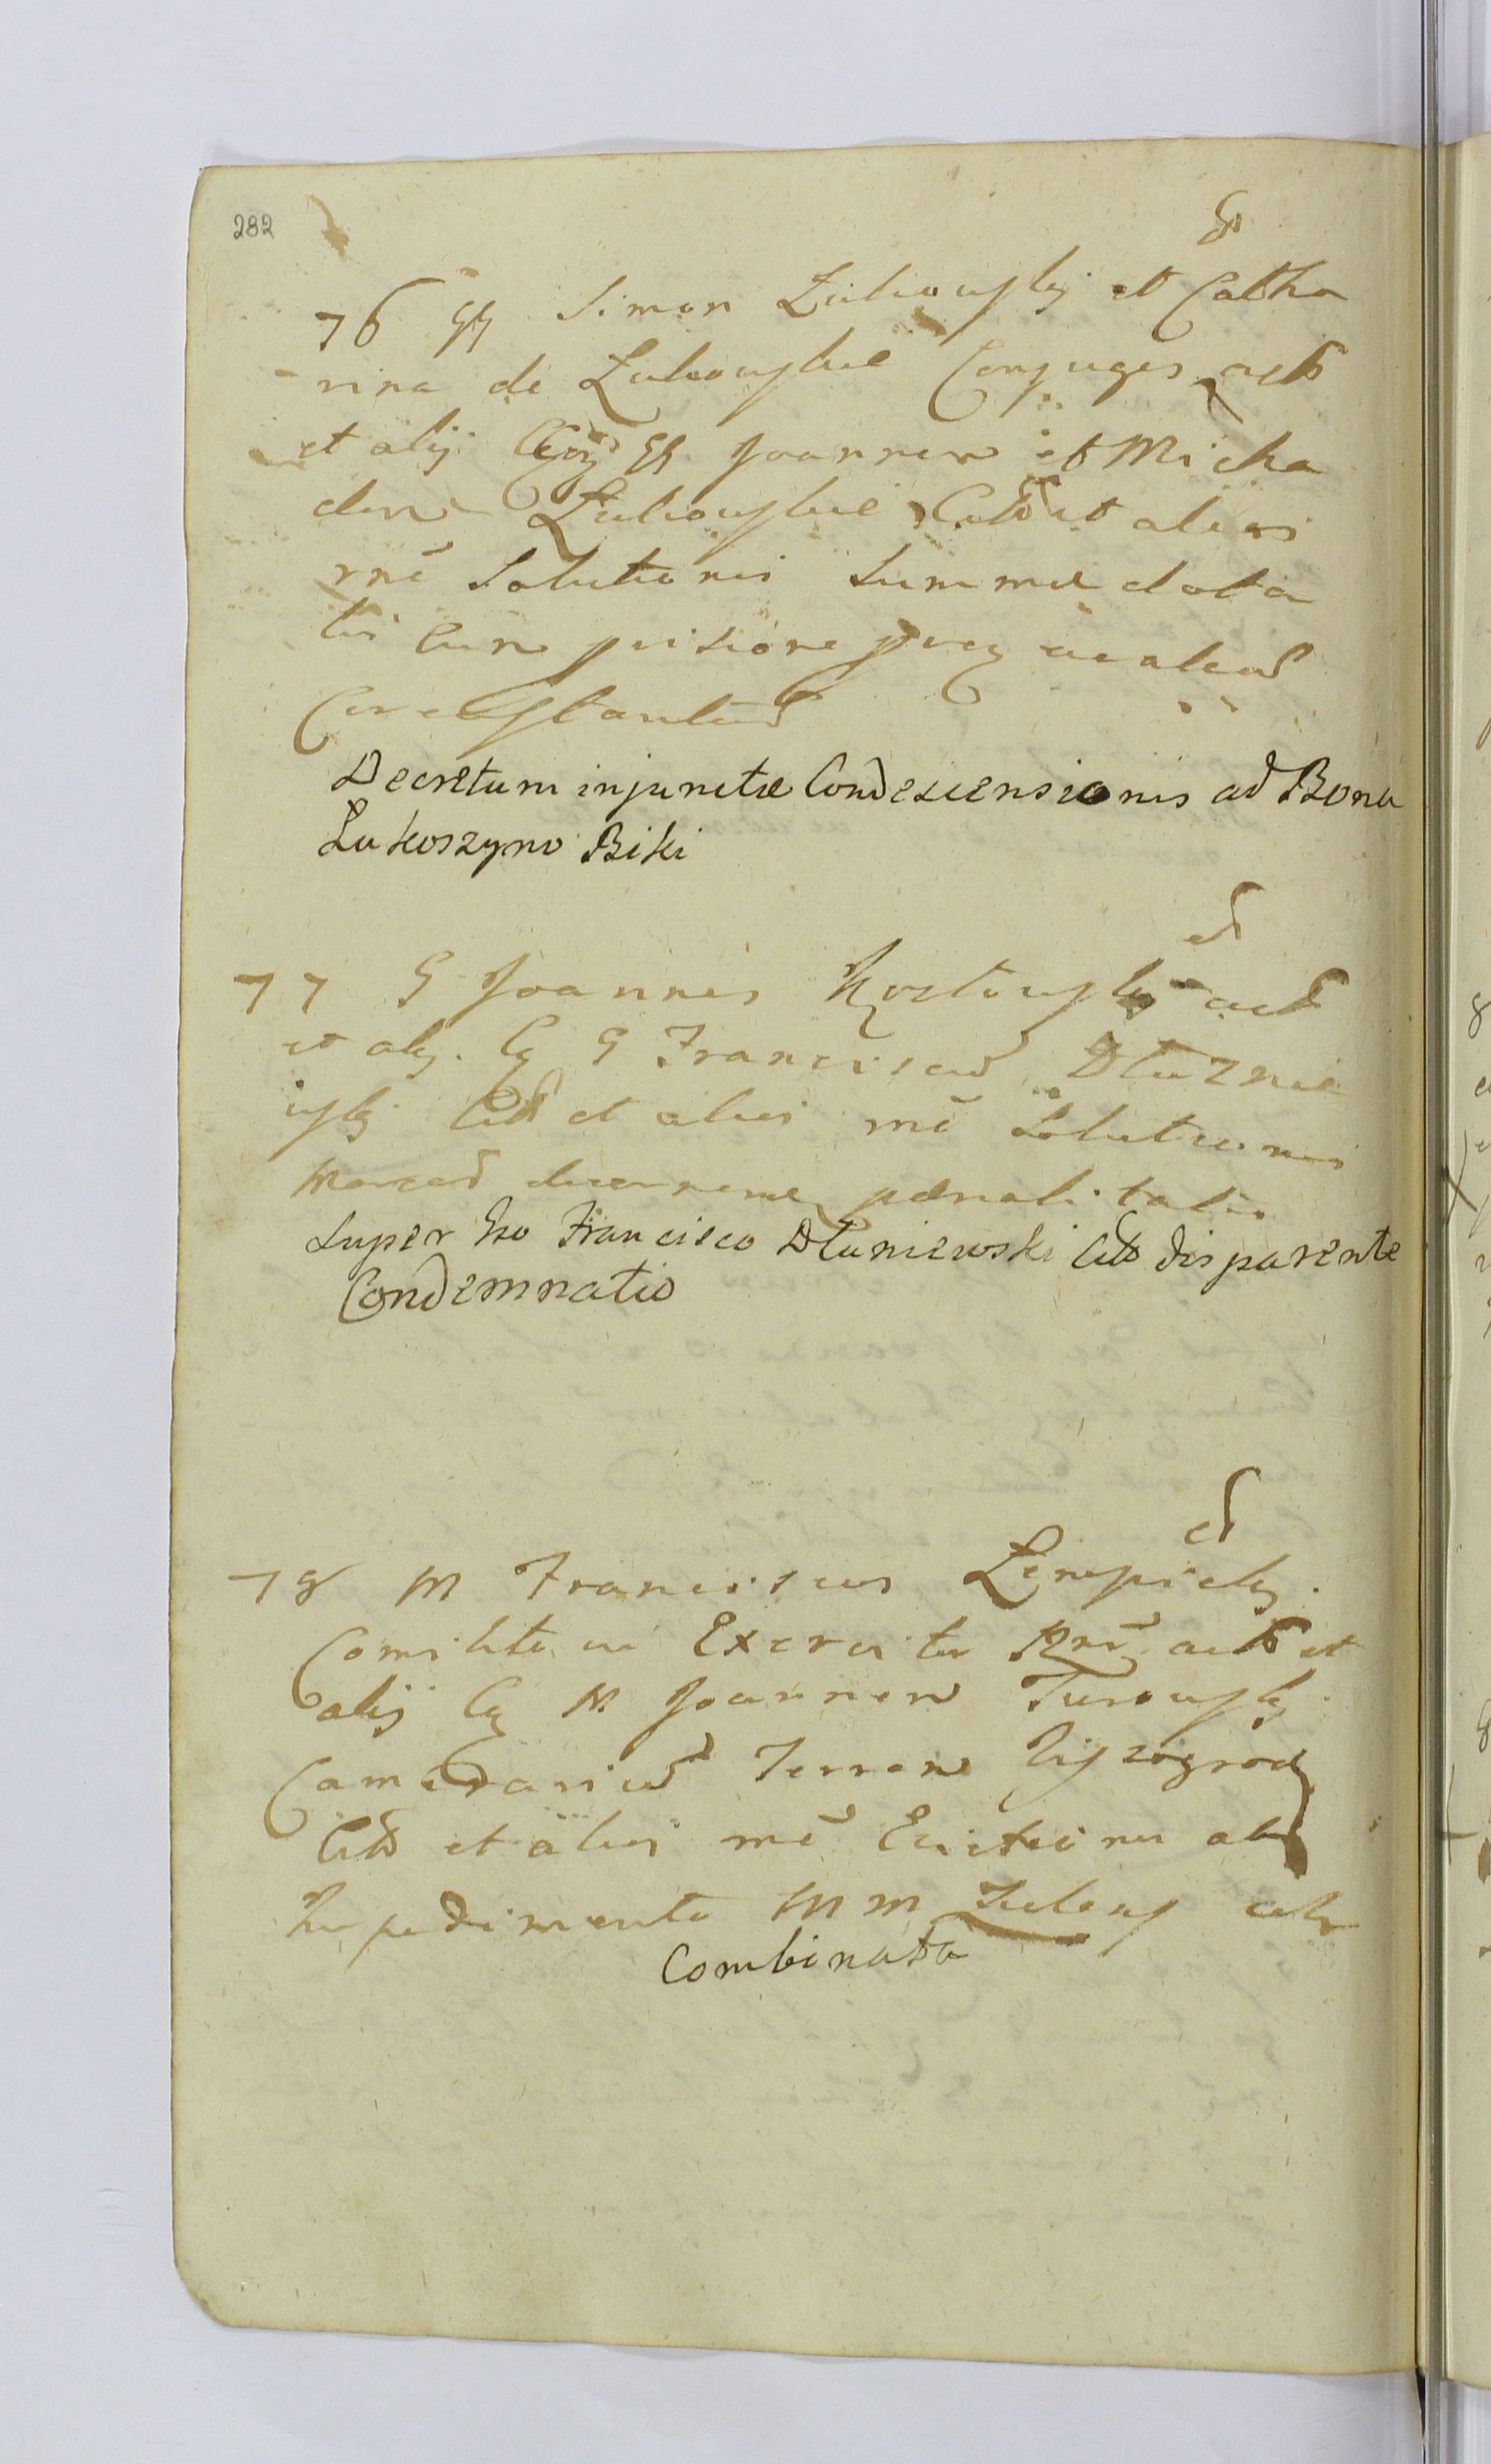 282
76 GG Simon Zukowskj et Catha
rina de Zukowskie Conjuges act
et alij Cgn GG Joannem et Micha
elem Zukowskie Citt et alios
rne Solutionis Summæ dota
lis cum
Decretum injunctæ Condescensionis ad Bona
Lukoszyno Biki
77 G Joannes act
et alij. Cg G Franciscum Dłuznie
wskj Citt et alios rne Solutionis
Marcas pænalitatis
Super Gso Francisco Dłuniewski Citto disparente
Condemnatio
78 M Franciscus Lempickj.
Comilito in Exercitu Rni act et
alij Cg M Joannem Turowskj
Camerarium Terræ Wyszogrod
Citt et alios rne Evictionis ab
Impedimento MM
Combinata